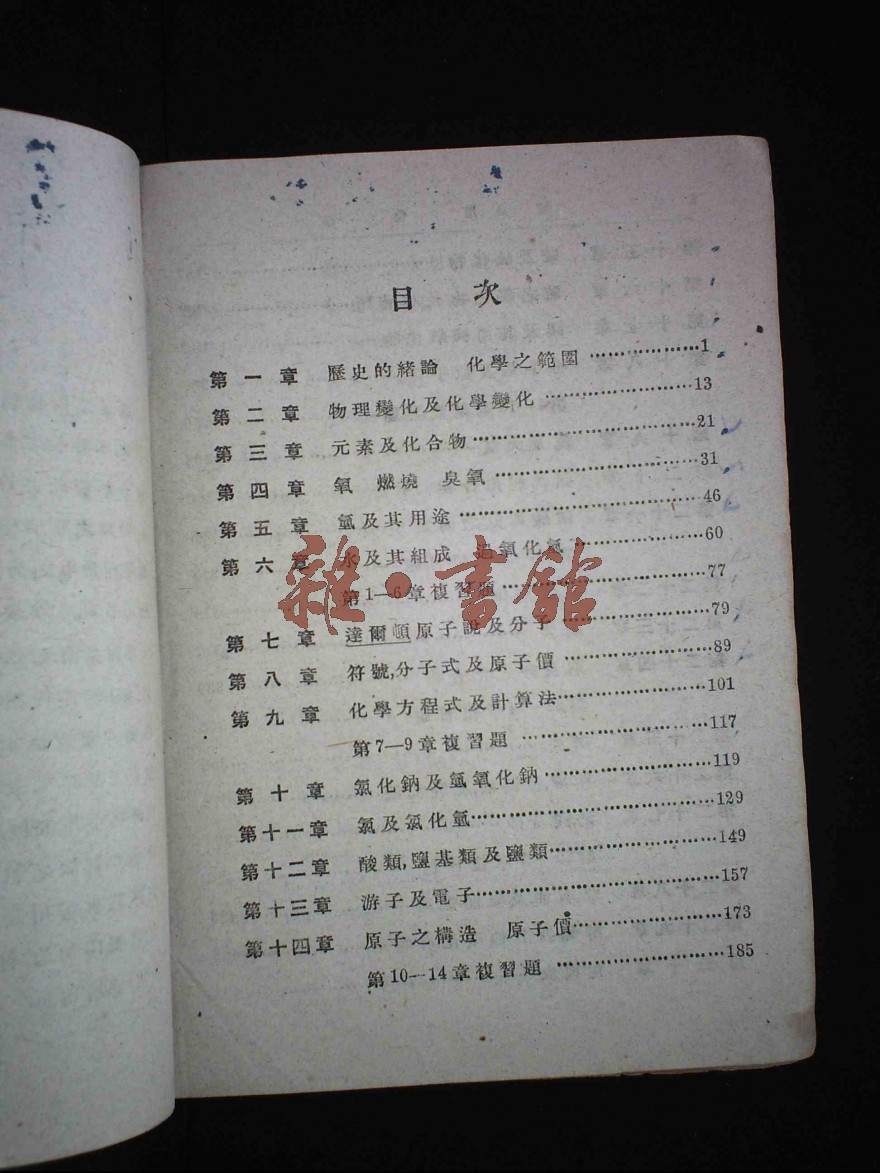 目 次
第一章 歷史的緒論 化學之範圍 …………………1
第二章 物理變化及化學變化 …………………13
第三章 元素及化合物 …………………………21
第四章 氧 燃燒 臭氧 …………………………31
第五章 氫及其用途 ……………………………46
第六章 水及其組成 過氧化氫 …………………60
第1—6章複習題 …………………………77
第七章 達爾頓原子說及分子 …………………79
第八章 符號,分子式及原子價 …………………89
第九章 化學方程式及計算法 …………………101
第7—9章複習題 …………………………117
第十章 氯化鈉及氫氧化鈉 …………………119
第十一章 氯及氯化氫 …………………………129
第十二章 酸類,鹽基類及鹽類 …………………149
第十三章 游子及電子 …………………………157
第十四章 原子之構造 原子價 …………………173
第10—14章複習題 …………………………185
雜·書館